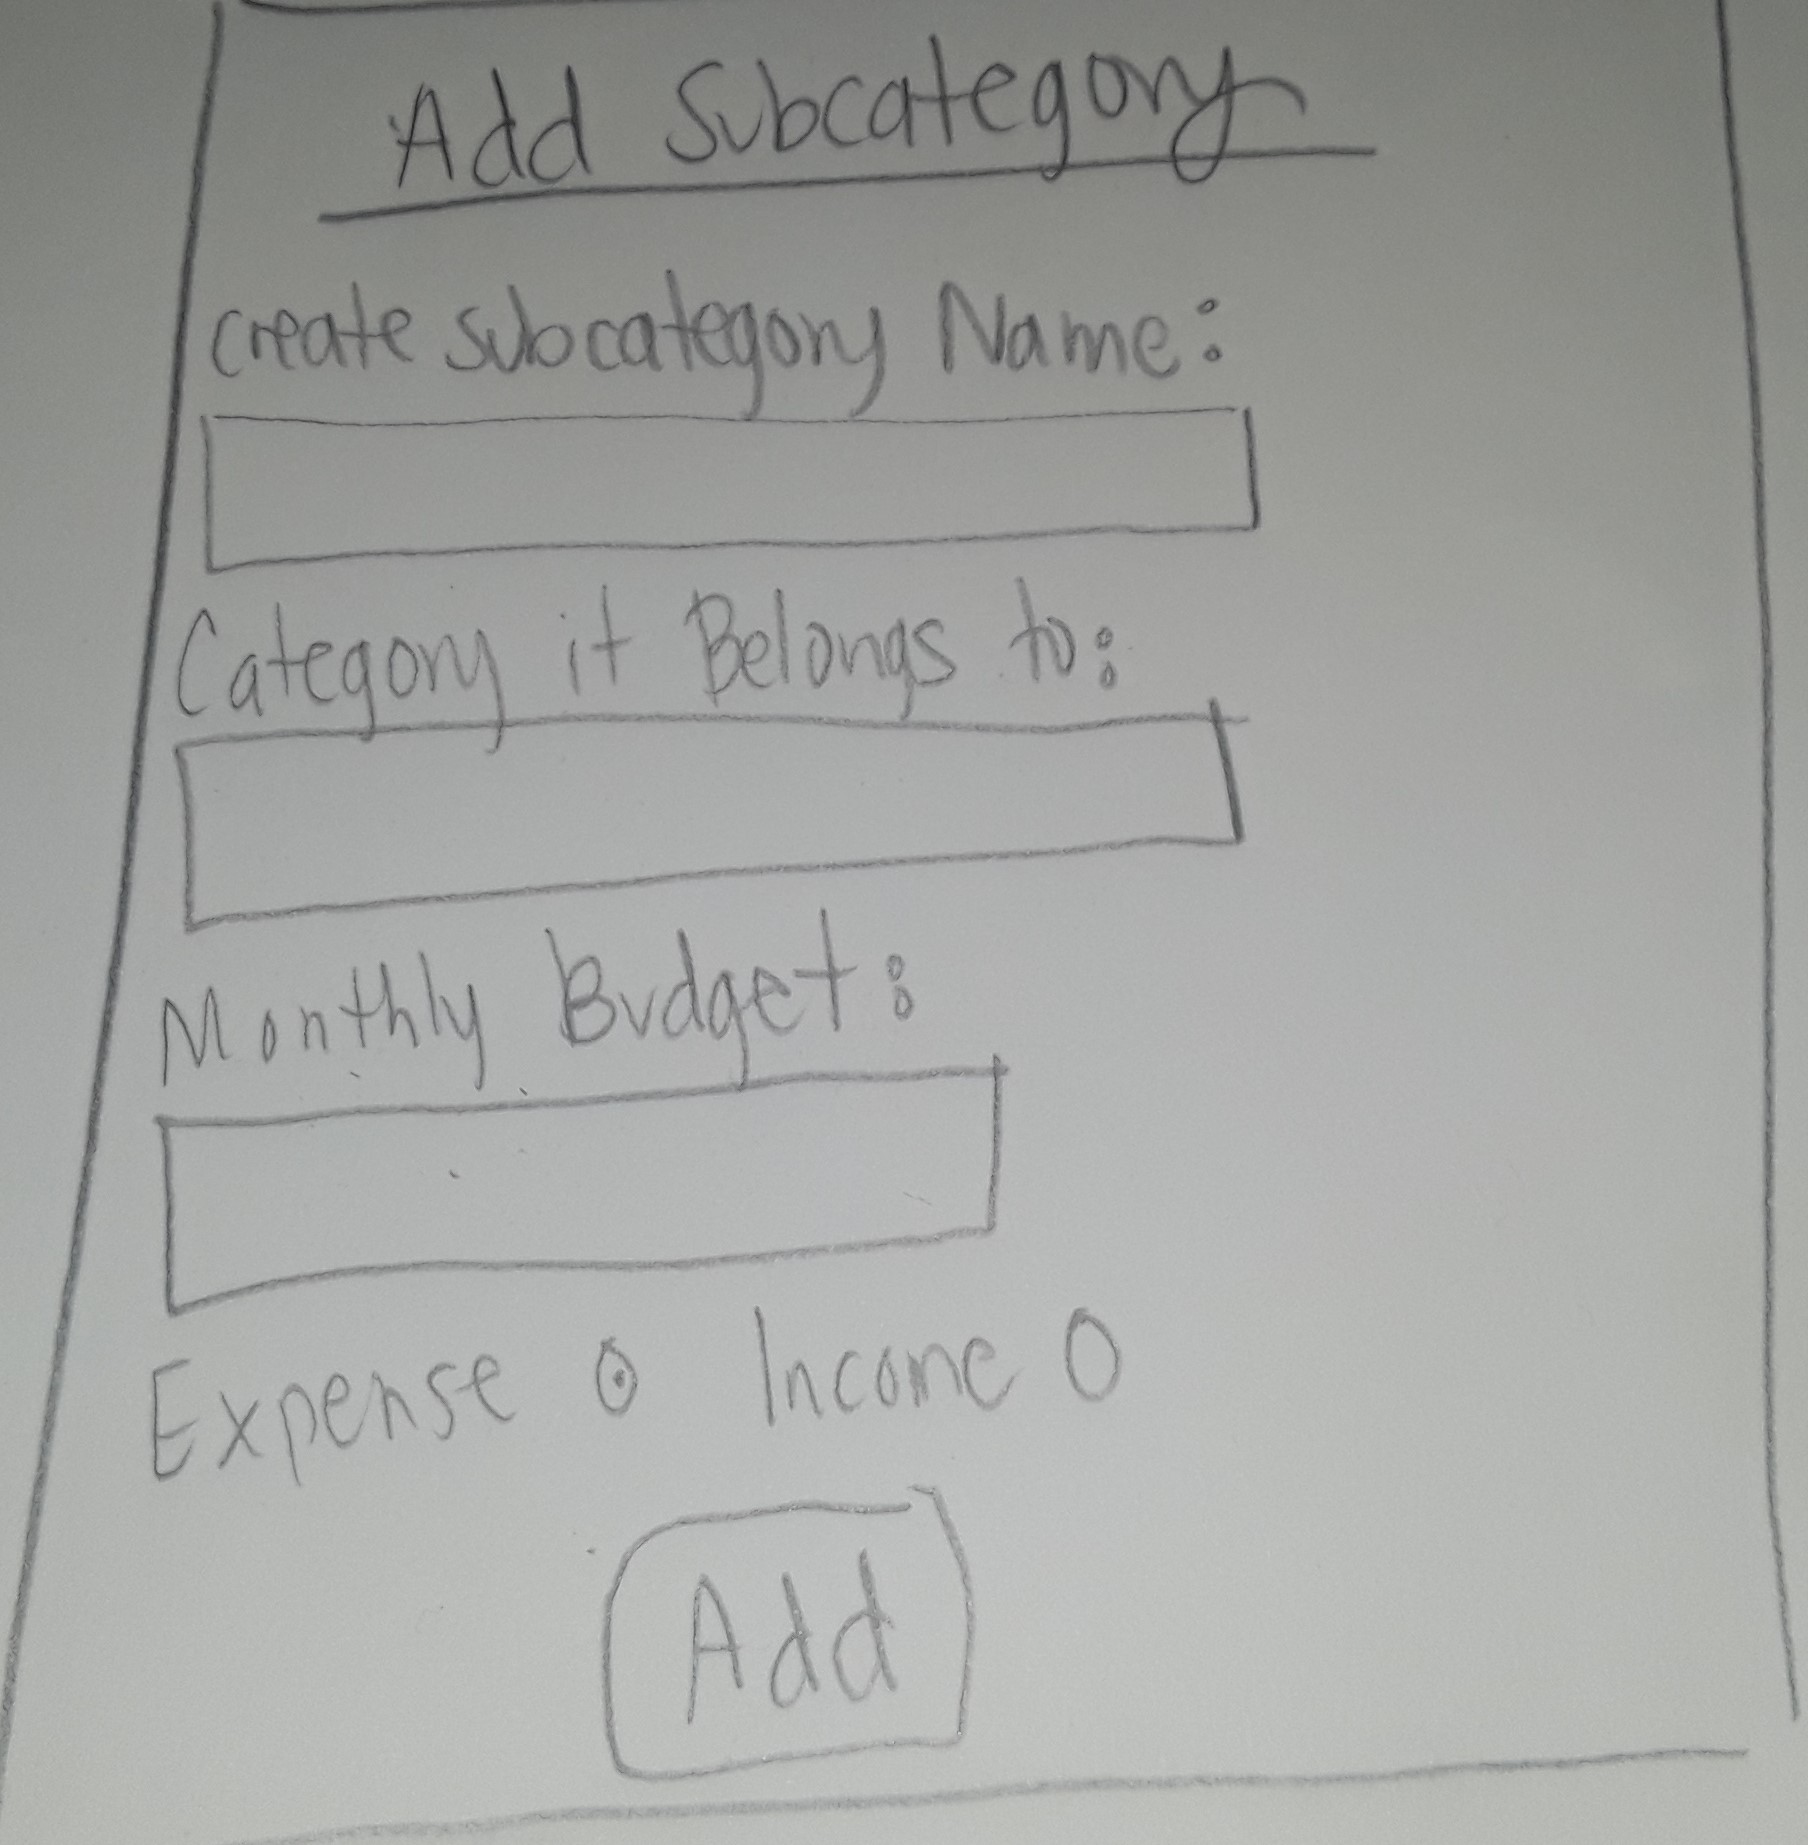 Add Subcategory
create subcategory Name:
Category it Belongs to:
Monthly Budget:
Expense Income
Add